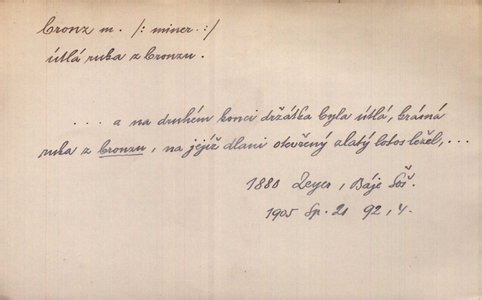 bronz m. /: miner. :/
útlá ruka z bronzu.
... a na druhém konci držátka byla útlá, krásná
ruka z bronzu, na jejíž dlani otevřený zlatý lotos ležel, ...
1880 Zeyer, Báje Šoš.
1905 Sp. 21 92, 4.